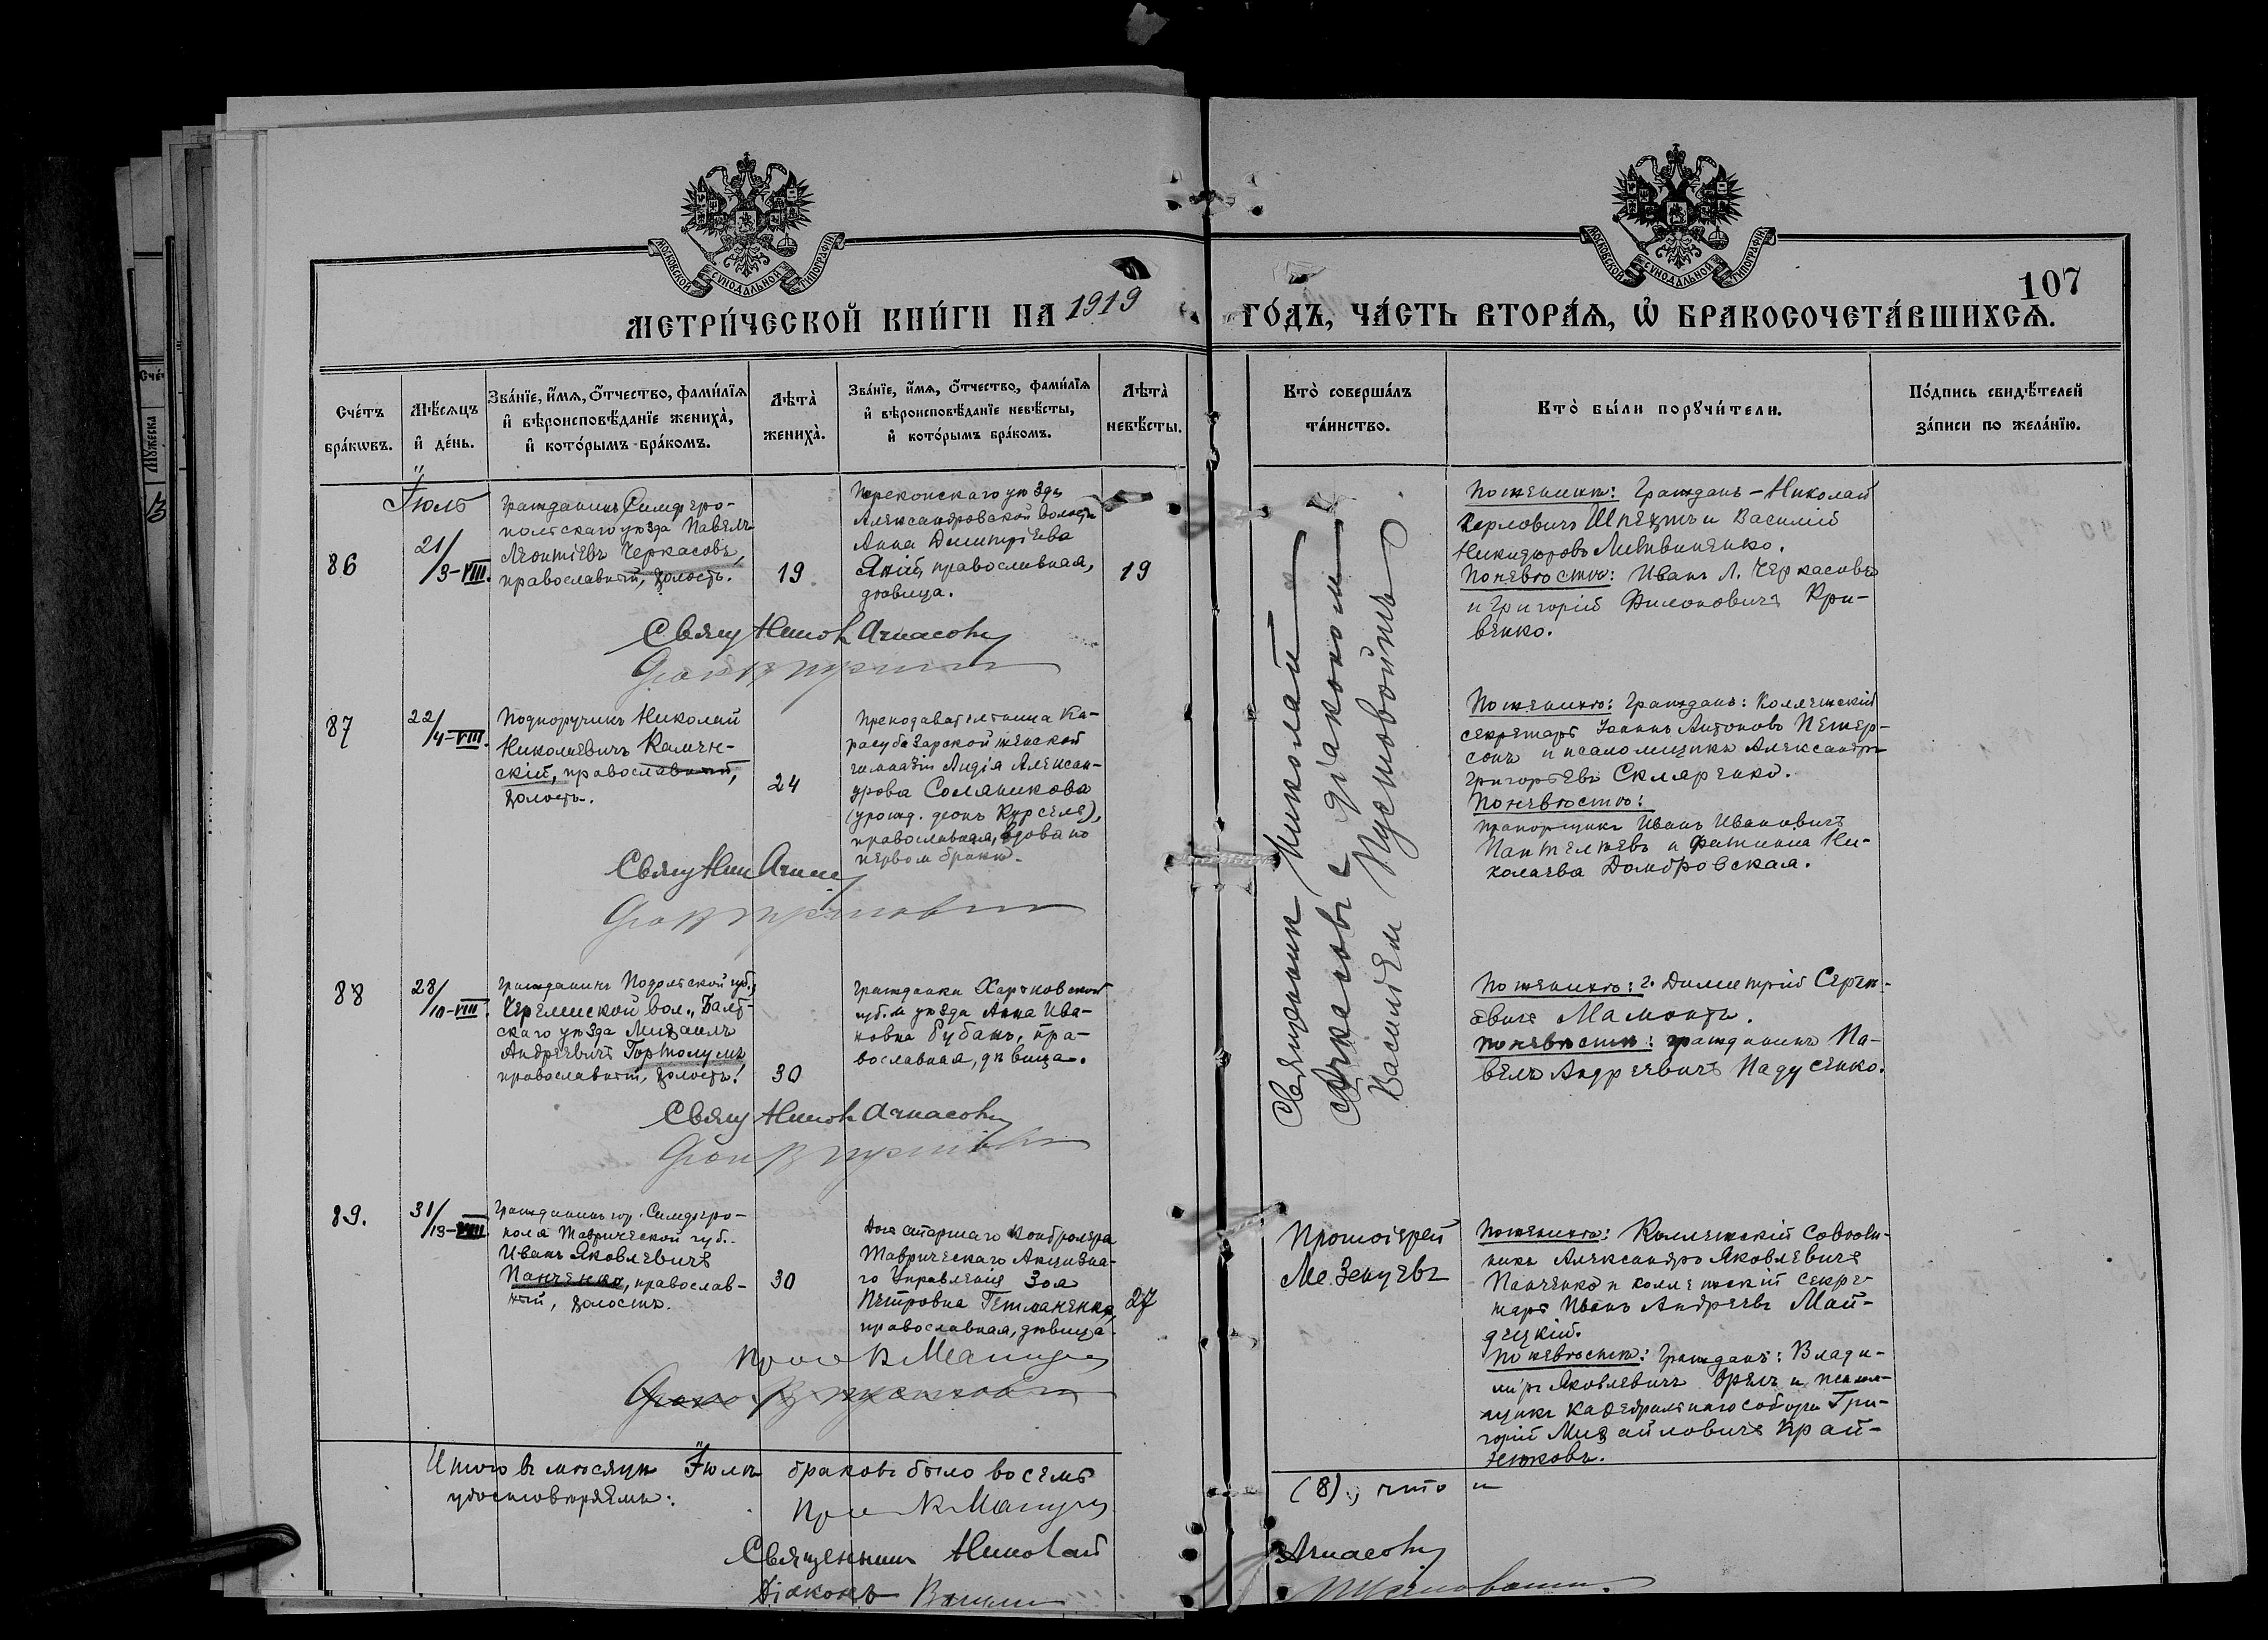 МОСКОВСКОЙ СУНОДАЛЬНОЙ ТИПОГРАФІИ
МОСКОВСКОЙ СУНОДАЛЬНОЙ ТИПОГРАФІИ
107
МЕТРИ́ЧЕСКОЙ КНИ́ГИ НА 1919
ГО́ДЪ, ЧА́СТЬ ВТОРА́Ѧ, Ѡ҆ БРАКОСОЧЕТА́ВШИХСѦ.
Сче́тъ
бра́кѡвъ.
Мѣ́сѧцъ
и҆ де́нь.
Зва́нїе, и҆́мѧ, ѻ҆́тчество, фами́лїѧ
и҆ вѣроисповѣ́данїе жениха̀,
и҆ кото́рымъ бра́комъ.
Лѣ́та̀
жениха̀.
Зва́нїе, и҆́мѧ, ѻ҆́тчество, фами́лїѧ
и҆ вѣроисповѣ́данїе невѣ́сты,
и҆ кото́рымъ бра́комъ.
Лѣ́та̀
невѣ́сты.
Кто̀ соверша́лъ
та́инство.
Кто̀ бы́ли порꙋчи́тели.
По́дпись свидѣ́телей
за́писи по жела́нїю.
Іюль
86
21/3-VIII.
Гражданинъ Симферо-
польскаго уѣзда Павелъ
Леонтіевъ Черкасовъ,
православный, холостъ.
19
Перекопскаго уѣзда
Александровской волости
Анна Димитріева
православная,
дѣвица.
19
Свящ Никол Ачкасовъ
По женихѣ: Граждане – Николай
Карловичъ Шпехтъ и Василій
Никифоровъ Литвиненко.
По невѣстѣ: Иванъ Л. Черкасовъ
и Григорій Филоновичъ Кри-
венко.
87
22/4-VIII.
Подпоручикъ Николай
Николаевичъ Камен-
скій, православный,
холостъ.
24
Преподавательница Ка-
расубазарской женской
гимназіи Лидія Алексан-
дрова Соляникова
(урожд. фонъ Курсель),
православная, вдова по
первом бракѣ.
Свящ Ник Ачкас
По женихѣ: Граждане: Коллежскій
секретарь Іоаннъ Антоновъ Петер-
сонъ и псаломщикъ Александръ
Григорьевъ Скляренко.
По невѣстѣ:
прапорщикъ Иванъ Ивановичъ
Пантелѣевъ и Фатина Ни-
колаева Домбровская.
88
28/10-VIII.
Гражданинъ Подольской губ.,
вол., Балт-
скаго уѣзда Михаилъ
Андреевичъ Гортолумъ
православный, холостъ.
30
Гражданка Харьковской
губ. и уѣзда Анна Ива-
новна Рубанъ, пра-
вославная, дѣвица.
Свящ Никол Ачкасовъ
По женихѣ: г. Димитрій Серге-
евичъ Мамонтъ.
По невѣстѣ: гражданинъ Па-
велъ Андреевичъ Падусенко.
Священник Николай
Ачкасовъ с діаконом
Василіем Пустовойтъ
89.
31/13-VIII
Гражданинъ гор. Симферо-
поля Таврической губ.
Иванъ Яковлевичъ
Панченко, православ-
ный, холостъ.
30
Дочь старшаго контролера
Таврическаго Акцизна-
го Управленія Зоя
Петровна Гетманенко,
православная, дѣвица.
27
Протоіерей
Мезенцевъ
По женихѣ: Коллежскій Совѣт-
никъ Александръ Яковлевичъ
Панченко и коллежскій секре-
тарь Иванъ Андреевъ Май-
децкій.
По невѣстѣ: Граждане: Влади-
міръ Яковлевичъ Орелъ и псалом-
щикъ Кафедральнаго собора Гри-
горій Михайловичъ Край-
нюковъ.
Итого въ мѣсяцѣ Іюлѣ браковъ было восемь (8), что и
удостовѣряемъ:
Священник Николай Ачкасовъ
Діаконъ Василій